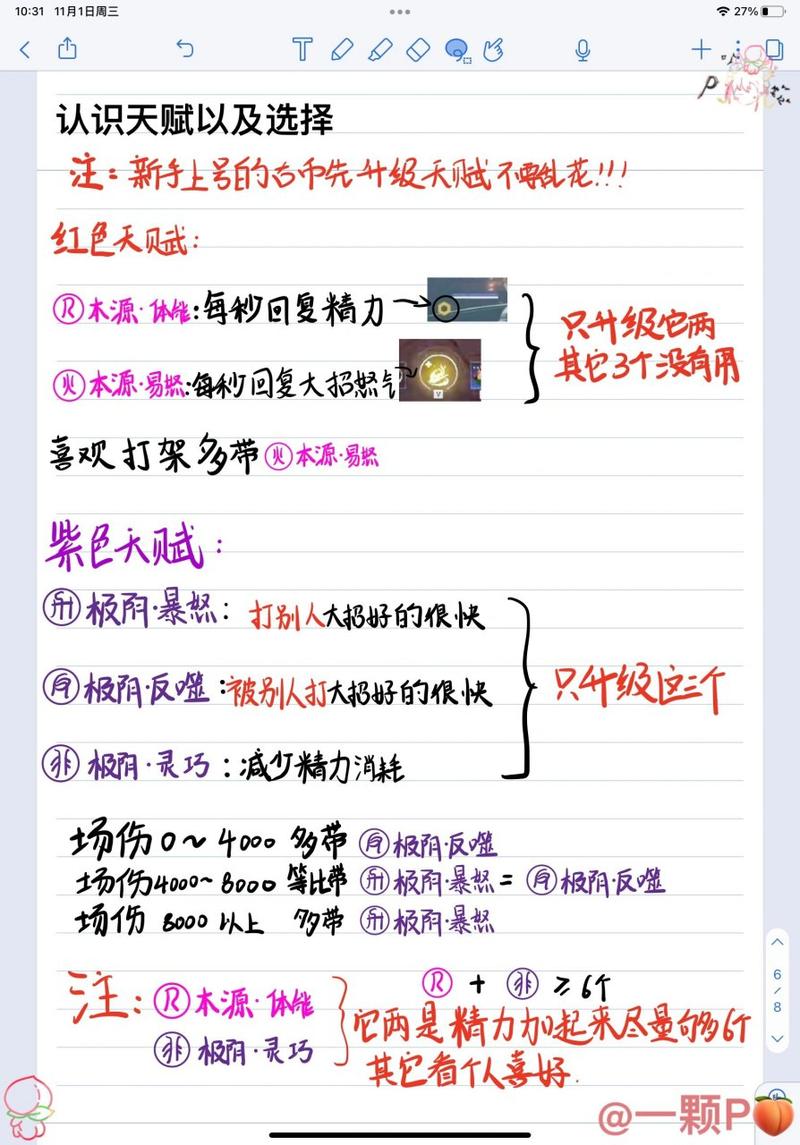 10:31 11月1日周三
27%
认识天赋以及选择
注：新手上号的古币先升级天赋不要乱花!!!
红色天赋：
本源·体能：每秒回复精力
只升级它两
其它3个没有用
火 本源·易怒：每秒回复大招怒气
V
喜欢打架多带 火 本源·易怒
紫色天赋：
极阴·暴怒：打别人大招好的很快
极阴·反噬：被别人打大招好的很快
只升级这三个
非 极阴·灵巧：减少精力消耗
场伤0～4000 多带 极阴·反噬
场伤4000～8000 等比带 极阴·暴怒 = 极阴·反噬
场伤 8000以上 多带 极阴·暴怒
注：R 本源·体能
非 极阴·灵巧
R + 非 ≥ 6个
它两是精力加起来尽量够多6个
其它看个人喜好.
6
/
8
@一颗P